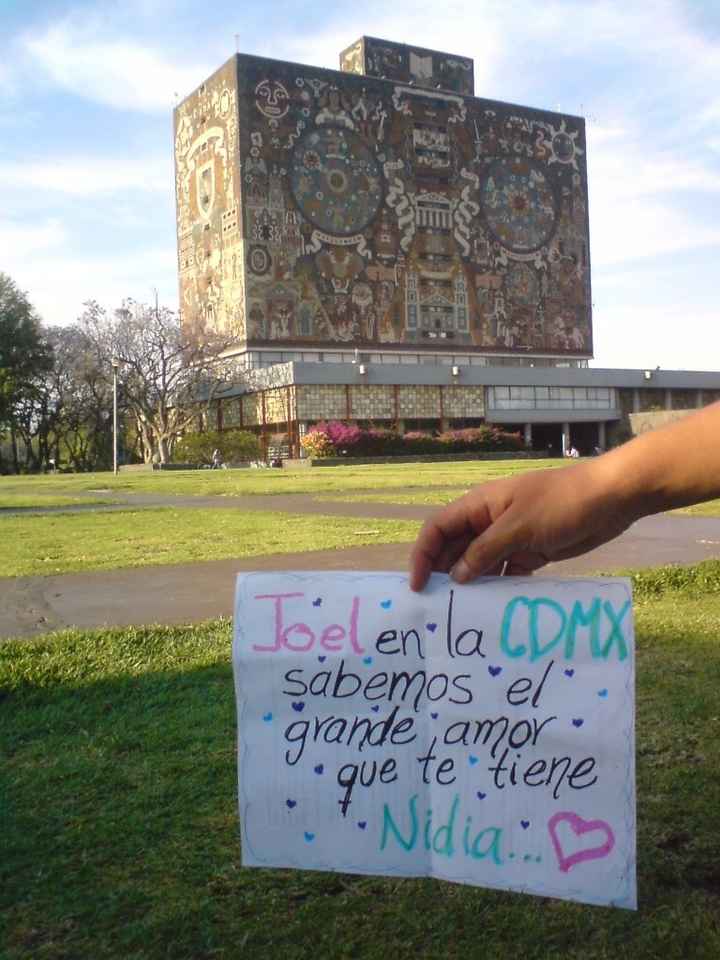 Joel en la CDMX
sabemos el
grande amor
que te tiene
Nidia...